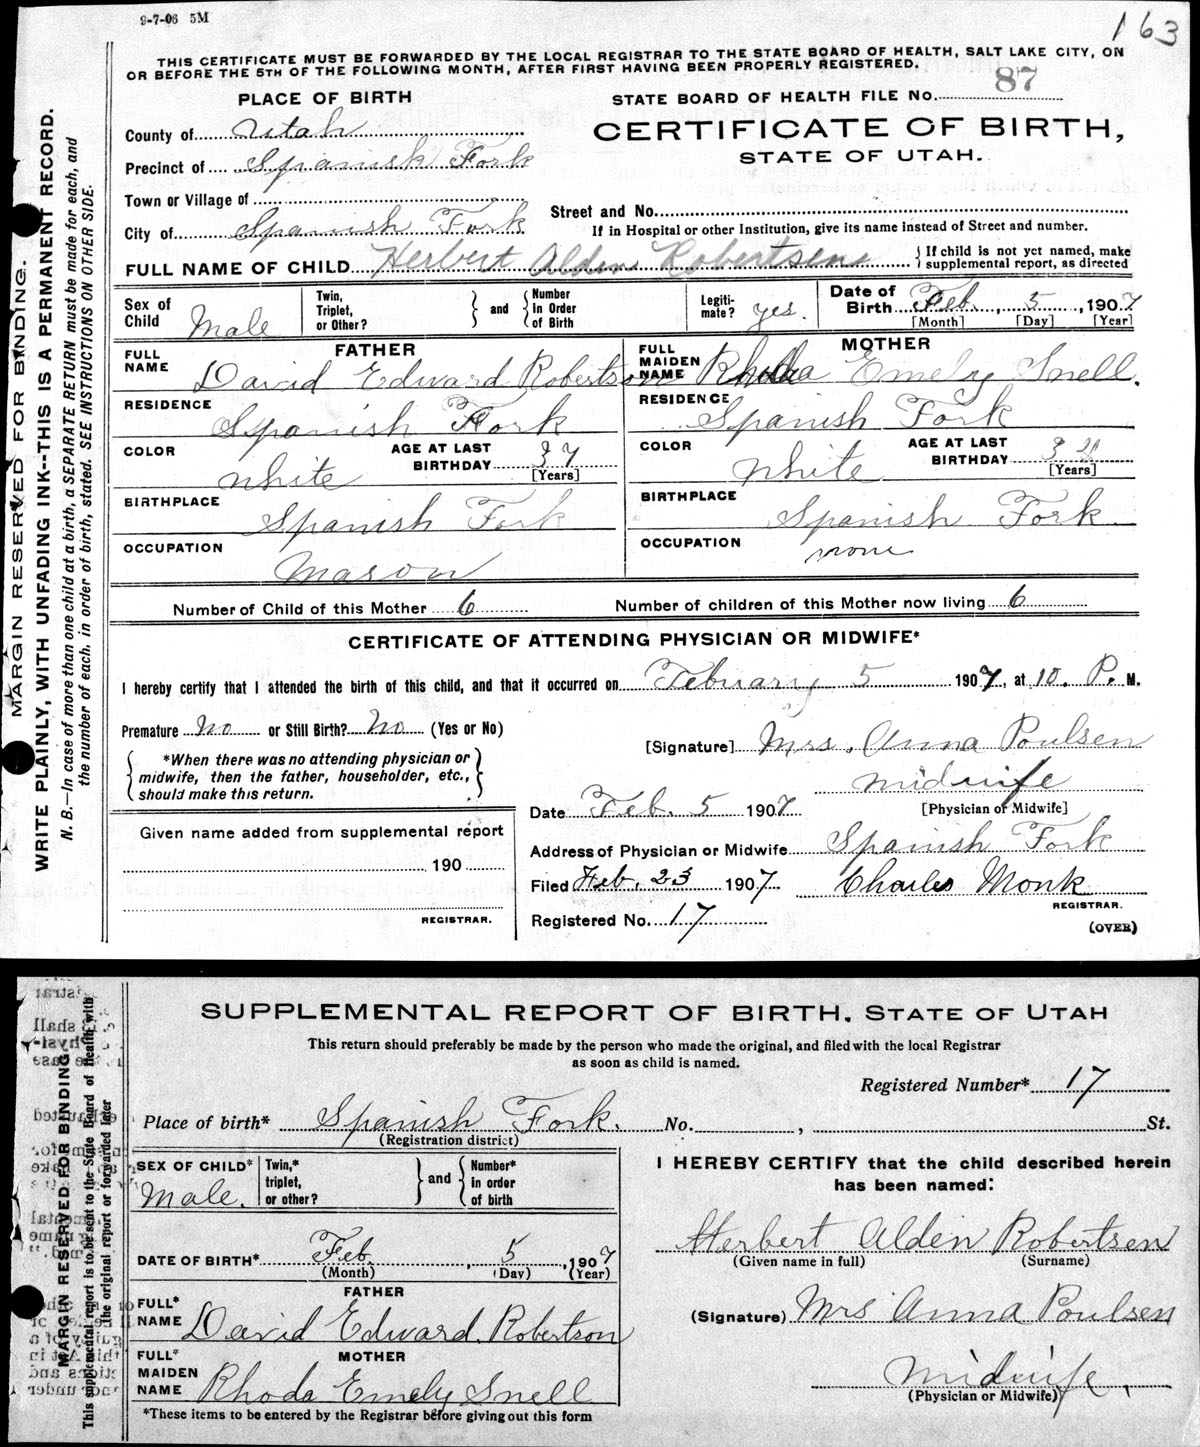 9-7-06 5M
163
THIS CERTIFICATE MUST BE FORWARDED BY THE LOCAL REGISTRAR TO THE STATE BOARD OF HEALTH, SALT LAKE CITY, ON
OR BEFORE THE 5TH OF THE FOLLOWING MONTH, AFTER FIRST HAVING BEEN PROPERLY REGISTERED.
PLACE OF BIRTH
STATE BOARD OF HEALTH FILE No. 87
County of Utah
CERTIFICATE OF BIRTH,
STATE OF UTAH.
Precinct of Spanish Fork
Town or Village of
Street and No.
City of Spanish Fork
If in Hospital or other Institution, give its name instead of Street and number.
FULL NAME OF CHILD Herbert Alden Robertsen { If child is not yet named, make
supplemental report, as directed
Sex of
Child Male
Twin,
Triplet,
or Other? } and { Number
in Order
of Birth
Legiti-
mate? yes.
Date of
Birth Feb. 5, 1907
[Month] [Day] [Year]
FATHER
FULL
NAME David Edward Robertson
MOTHER
FULL
MAIDEN
NAME Rhoda Emely Snell.
RESIDENCE Spanish Fork
RESIDENCE Spanish Fork
COLOR White
AGE AT LAST
BIRTHDAY 37
[Years]
COLOR White
AGE AT LAST
BIRTHDAY
[Years]
BIRTHPLACE Spanish Fork
BIRTHPLACE Spanish Fork
OCCUPATION Mason
OCCUPATION none
Number of Child of this Mother 6
Number of children of this Mother now living 6
CERTIFICATE OF ATTENDING PHYSICIAN OR MIDWIFE*
I hereby certify that I attended the birth of this child, and that it occurred on February 5 1907, at 10. P. M.
Premature No or Still Birth? No (Yes or No)
[Signature] Mrs. Anna Poulsen
{ *When there was no attending physician or
midwife, then the father, householder, etc.,
should make this return. }
midwife
[Physician or Midwife]
Date Feb. 5 1907
Given name added from supplemental report
190
REGISTRAR.
Address of Physician or Midwife Spanish Fork
Filed Feb. 23 1907 Charles Monk
REGISTRAR.
Registered No. 17
(OVER)
MARGIN RESERVED FOR BINDING.
WRITE PLAINLY, WITH UNFADING INK--THIS IS A PERMANENT RECORD.
N. B.—In case of more than one child at a birth, a SEPARATE RETURN must be made for each, and
the number of each, in order of birth, stated. SEE INSTRUCTIONS ON OTHER SIDE.
SUPPLEMENTAL REPORT OF BIRTH. STATE OF UTAH
This return should preferably be made by the person who made the original, and filed with the local Registrar
as soon as child is named.
Registered Number* 17
Place of birth* Spanish Fork. No. , St.
(Registration district)
SEX OF CHILD*
Male.
Twin,*
triplet,
or other? } and { Number*
in order
of birth
DATE OF BIRTH* Feb. 5, 1907
(Month) (Day) (Year)
FATHER
FULL*
NAME David Edward Robertson
MOTHER
FULL*
MAIDEN
NAME Rhoda Emely Snell
*These items to be entered by the Registrar before giving out this form
I HEREBY CERTIFY that the child described herein
has been named:
Herbert Alden Robertsen
(Given name in full) (Surname)
(Signature) Mrs Anna Poulsen
Midwife.
(Physician or Midwife)
MARGIN RESERVED FOR BINDING
This supplemental report is to be sent to the State Board of Health with
the original report or forwarded later